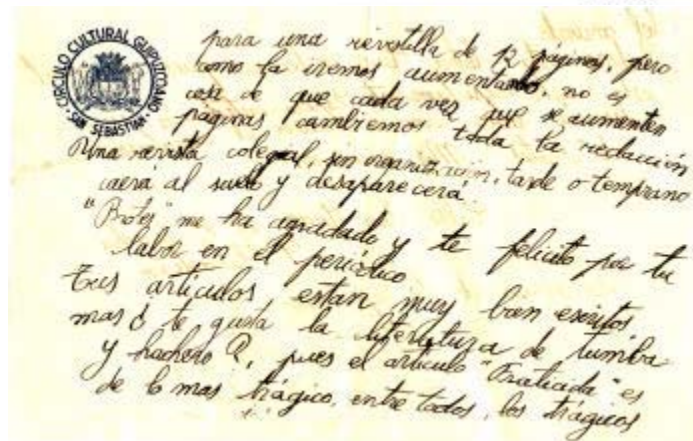 CIRCULO CULTURAL GUIPUZCOANO
SAN SEBASTIAN
para una revistilla de 12 páginas, pero
como la iremos aumentando, no es
cosa de que cada vez que se aumenten
páginas cambiemos toda la redacción
Una revista colegial, sin organización, tarde o temprano
caerá al suelo y desaparecerá.
me ha agradado y te felicito por tu
labor en el periódico
tus articulos estan muy bien escritos,
mas ¿ te gusta la literatura de tumba
y hachero?, pues el articulo es
de lo mas trágico, entre todos, los trágicos